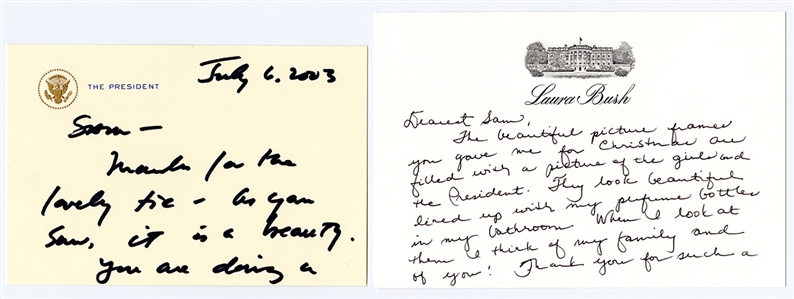 July 6, 2003
THE PRESIDENT
Sam —
Thanks for the
lovely tie – as you
saw, it is a beauty.
You are doing a
Laura Bush
Dearest Sam,
The beautiful picture frames
you gave me for Christmas are
filled with a picture of the girls and
the President. They look beautiful
lined up with my perfume bottles
in my bathroom. When I look at
them I think of my family and
of you! Thank you for such a